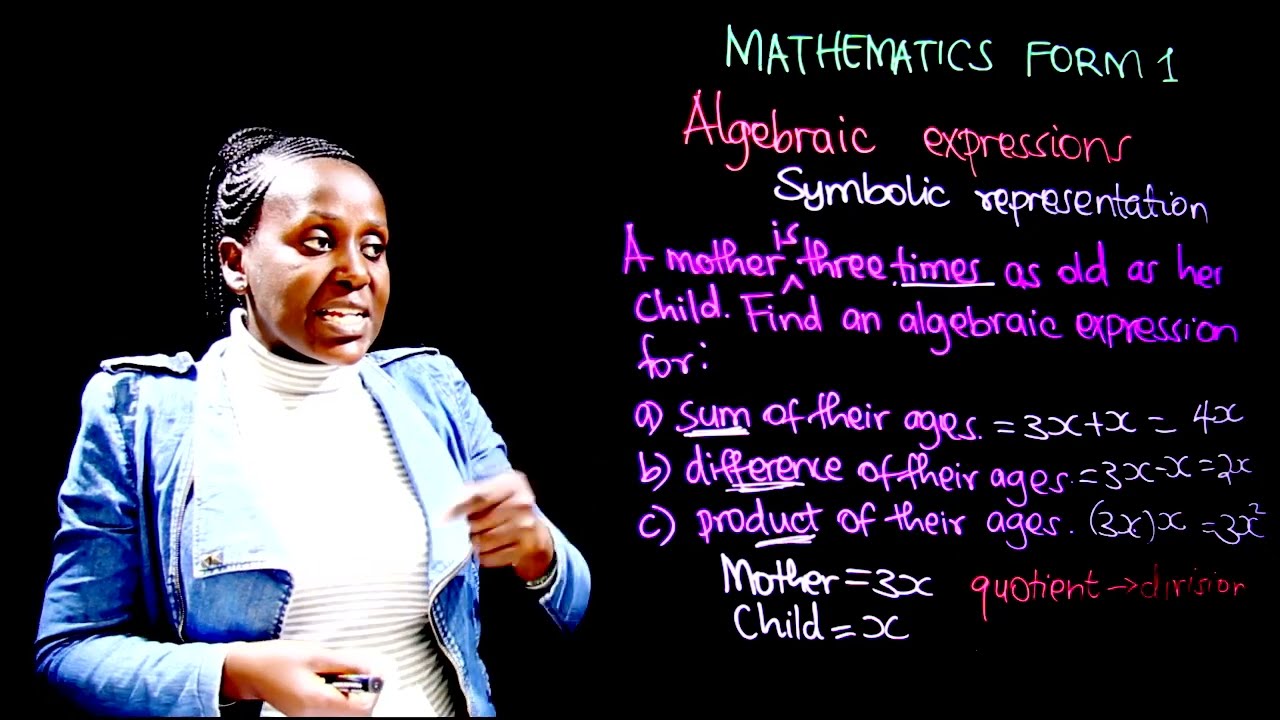 MATHEMATICS FORM 1
Algebraic expressions
Symbolic representation
A mother is three times as old as her
Child. Find an algebraic expression
for:
a) sum of their ages. = 3x+x = 4x
b) difference of their ages. = 3x-x = 2x
c) product of their ages. (3x)x = 3x²
Mother = 3x quotient → division
Child = x